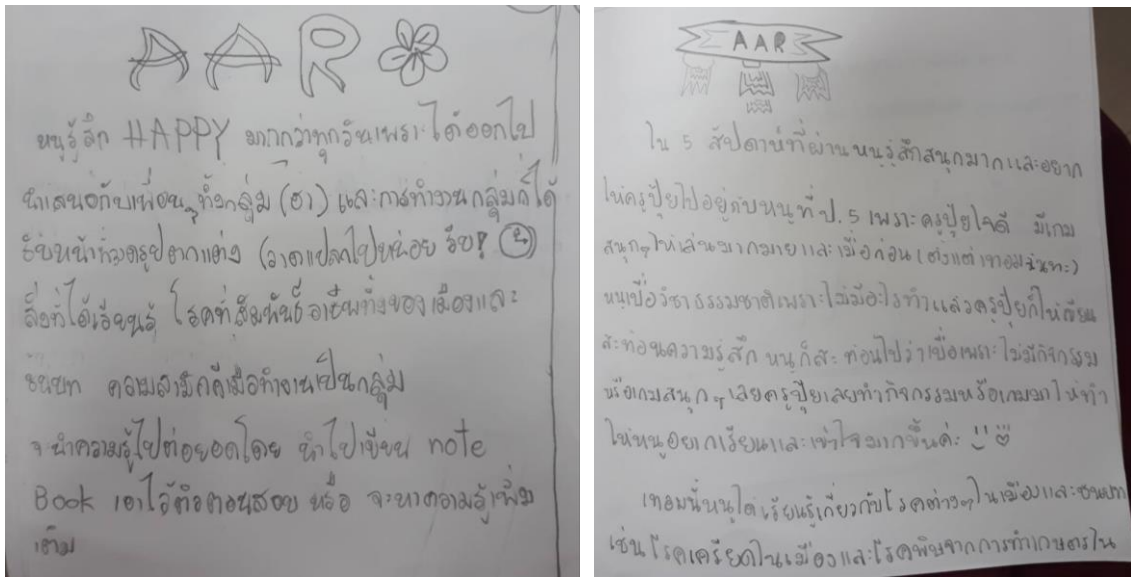 AAR
หนูรู้สึก HAPPY มากกว่าทุกวันเพราะได้ออกไป
นำเสนอกับเพื่อนๆทั้งกลุ่ม (ฮา) และการทำงานกลุ่มก็ได้
รับหน้าที่วาดรูปตกแต่ง (วาดแปลกไปหน่อย
สิ่งที่ได้เรียนรู้ โรคที่สัมพันธ์อาชีพทั้งของเมืองและ
ชนบท ความสามัคคีเมื่อทำงานเป็นกลุ่ม
จะนำความรู้ไปต่อยอดโดย นำไปเขียน note
Book เอาไว้ติวตอนสอบ หรือ จะหาความรู้เพิ่ม
เติม
AAR
ใน 5 สัปดาห์ที่ผ่านหนูรู้สึกสนุกมากและอยาก
ให้ครูปุ๋ยไปอยู่กับหนูที่ป.5 เพราะครูปุ๋ยใจดี มีเกม
สนุกๆให้เล่นมากมายและเมื่อก่อน(ตั้งแต่เทอมฉันทะ)
หนูเบื่อวิชาธรรมชาติเพราะไม่มีอะไรทำแล้วครูปุ๋ยก็ให้เขียน
สะท้อนความรู้สึก หนูก็สะท้อนไปว่าเบื่อเพราะไม่มีกิจกรรม
หรือเกมสนุกๆเลยครูปุ๋ยเลยทำกิจกรรมหรือเกมมาให้ทำ
ให้หนูอยากเรียนและเข้าใจมากขึ้นค่ะ
เทอมนี้หนูได้เรียนรู้เกี่ยวกับโรคต่างๆในเมืองและชนบท
เช่นโรคเครียดในเมืองและโรคพิษจากการทำเกษตรใน